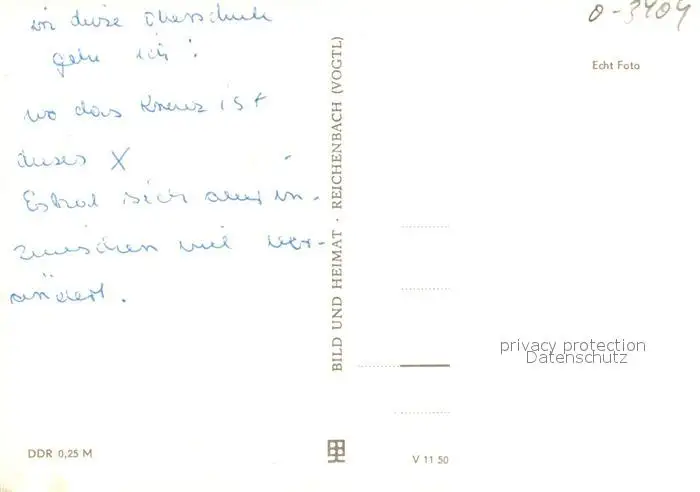 in diese Oberschule
gehe ich !
wo das Kreuz ist
dieses X
Es hat sich aber in-
zwischen viel ver-
ändert.
BILD UND HEIMAT · REICHENBACH (VOGTL)
0-3404
Echt Foto
privacy protection
Datenschutz
DDR 0,25 M
V 11 50